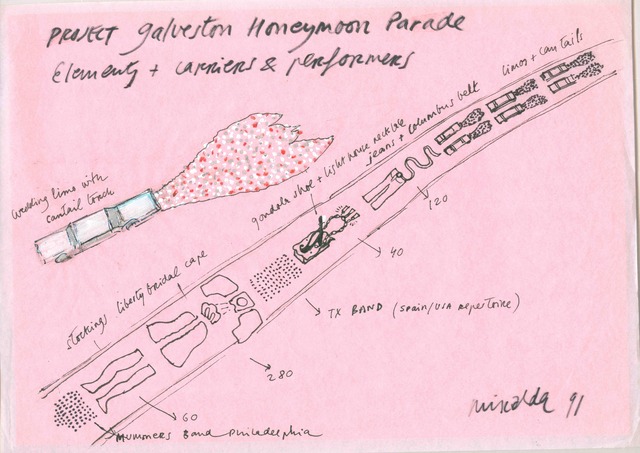 PROJECT Galveston Honeymoon Parade
Elements + carriers & performers
limos + can tails
jeans + columbus belt
gondola shoe + lighthouse necklace
wedding limo with
cantail torch
120
40
stockings liberty bridal cape
TX BAND (Spain/USA repertoire)
280
60
Mummers Band Philadelphia
Miralda 91